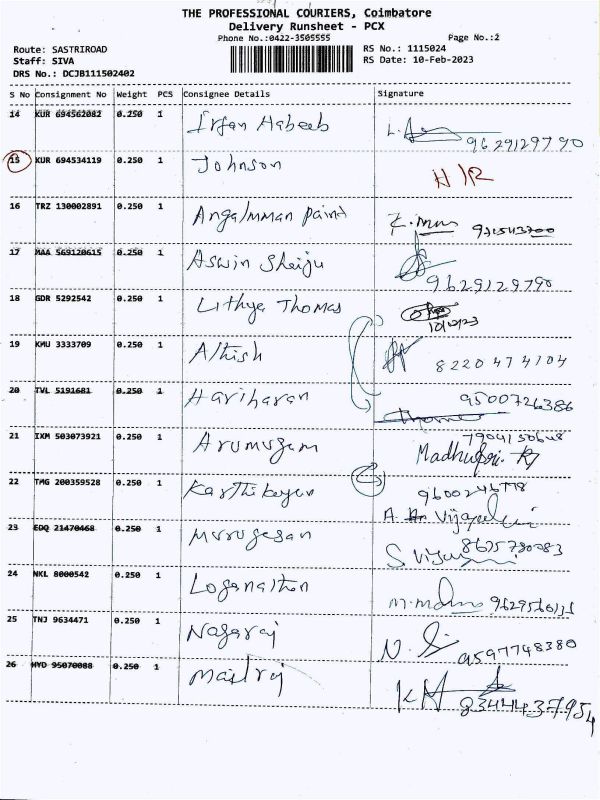 THE PROFESSIONAL COURIERS, Coimbatore
Delivery Runsheet - PCX
Phone No.:0422-3505555 Page No.:2
Route: SASTRIROAD RS No.: 1115024
Staff: SIVA RS Date: 10-Feb-2023
DRS No.: DCJB111502402
S No Consignment No Weight PCS Consignee Details Signature
14 KUR 694562082 0.250 1 Irfan Habeeb
9629129790
15 KUR 694534119 0.250 1 Johnson H/R
16 TRZ 130002891 0.250 1 Angalmman Paint
17 MAA 569120615 0.250 1 Aswin Sheiju
9629129790
18 GDR 5292542 0.250 1 Lithya Thomas
10/02/23
19 KMU 3333709 0.250 1 Althish 8220474704
20 TVL 5191681 0.250 1 Hariharan 9500726386
21 IKM 503073921 0.250 1 Arumugam
22 TMG 200359528 0.250 1 Karthikeyan
23 EDQ 21470468 0.250 1 Murugesan
24 NKL 8000542 0.250 1 Loganathan
25 TNJ 9634471 0.250 1 Nagaraj
9597748380
26 HYD 95070088 0.250 1
8344437954